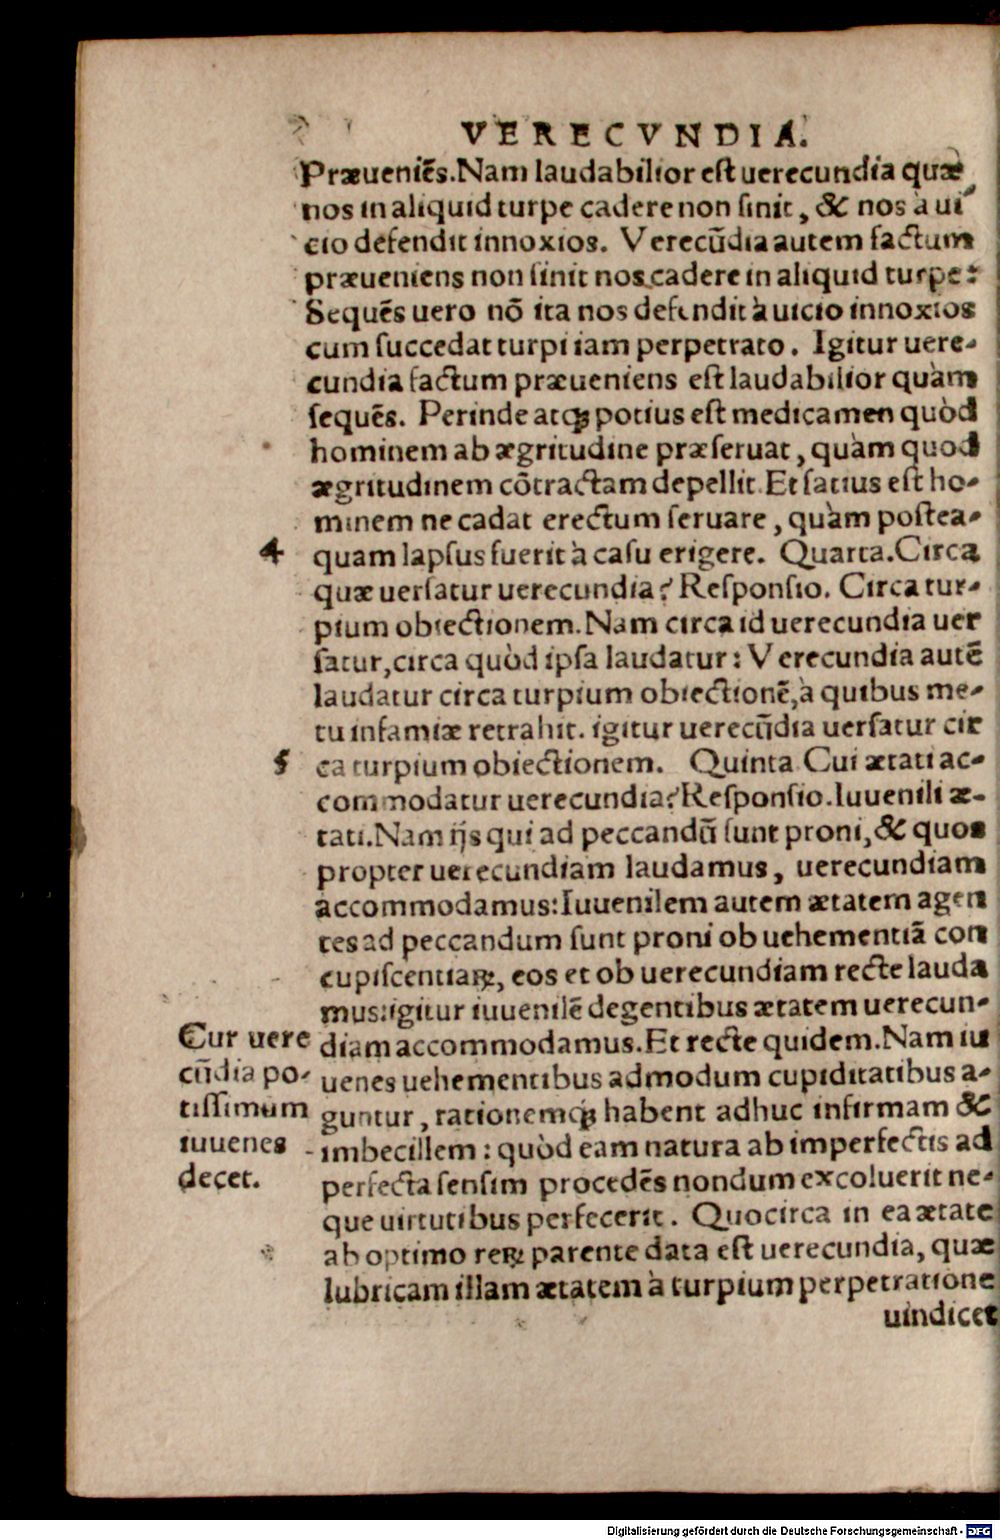 VERECVNDIA.
Præueniẽs. Nam laudabilior est uerecundia quæ
nos in aliquid turpe cadere non sinit, & nos à ui
cio defendit innoxios. Verecũdia autem factum
præueniens non sinit nos cadere in aliquid turpe:
Sequẽs uero nõ ita nos defendit à uicio innoxios
cum succedat turpi iam perpetrato. Igitur uere-
cundia factum præueniens est laudabilior quàm
sequẽs. Perinde atq; potius est medicamen quòd
hominem ab ægritudine præseruat, quàm quod
ægritudinem cõtractam depellit. Et satius est ho-
minem ne cadat erectum seruare, quàm postea-
4 quam lapsus fuerit à casu erigere. Quarta. Circa
quæ uersatur uerecundia? Responsio. Circa tur-
pium obiectionem. Nam circa id uerecundia uer
satur, circa quòd ipsa laudatur: Verecundia autẽ
laudatur circa turpium obiectionẽ, à quibus me-
tu infamiæ retrahit. igitur uerecũdia uersatur cir
5 ca turpium obiectionem. Quinta Cui ætati ac-
commodatur uerecundia? Responsio. Iuuenili æ-
tati. Nam ijs qui ad peccandũ sunt proni, & quos
propter uerecundiam laudamus, uerecundiam
accommodamus: Iuuenilem autem ætatem agen
tes ad peccandum sunt proni ob uehementiã con
cupiscentiaꝝ, eos et ob uerecundiam recte lauda
mus: igitur iuuenilẽ degentibus ætatem uerecun-
diam accommodamus. Et recte quidem. Nam iu
uenes uehementibus admodum cupiditatibus a-
guntur, rationemq; habent adhuc infirmam &
imbecillem: quòd eam natura ab imperfectis ad
perfecta sensim procedẽs nondum excoluerit ne-
que uirtutibus perfecerit. Quocirca in ea ætate
ab optimo reꝝ parente data est uerecundia, quæ
lubricam illam ætatem à turpium perpetratione
uindicet
Cur uere
cũdia po-
tissimum
iuuenes
decet.
Digitalisierung gefördert durch die Deutsche Forschungsgemeinschaft - DFG